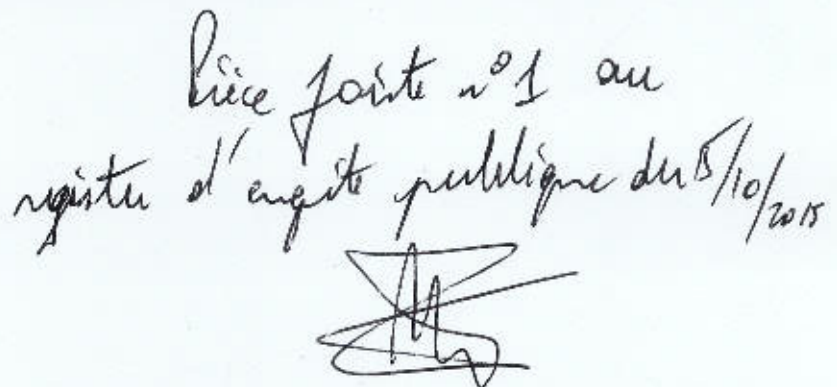 Pièce jointe n°1 au
registre d'enquête publique du 15/10/2015